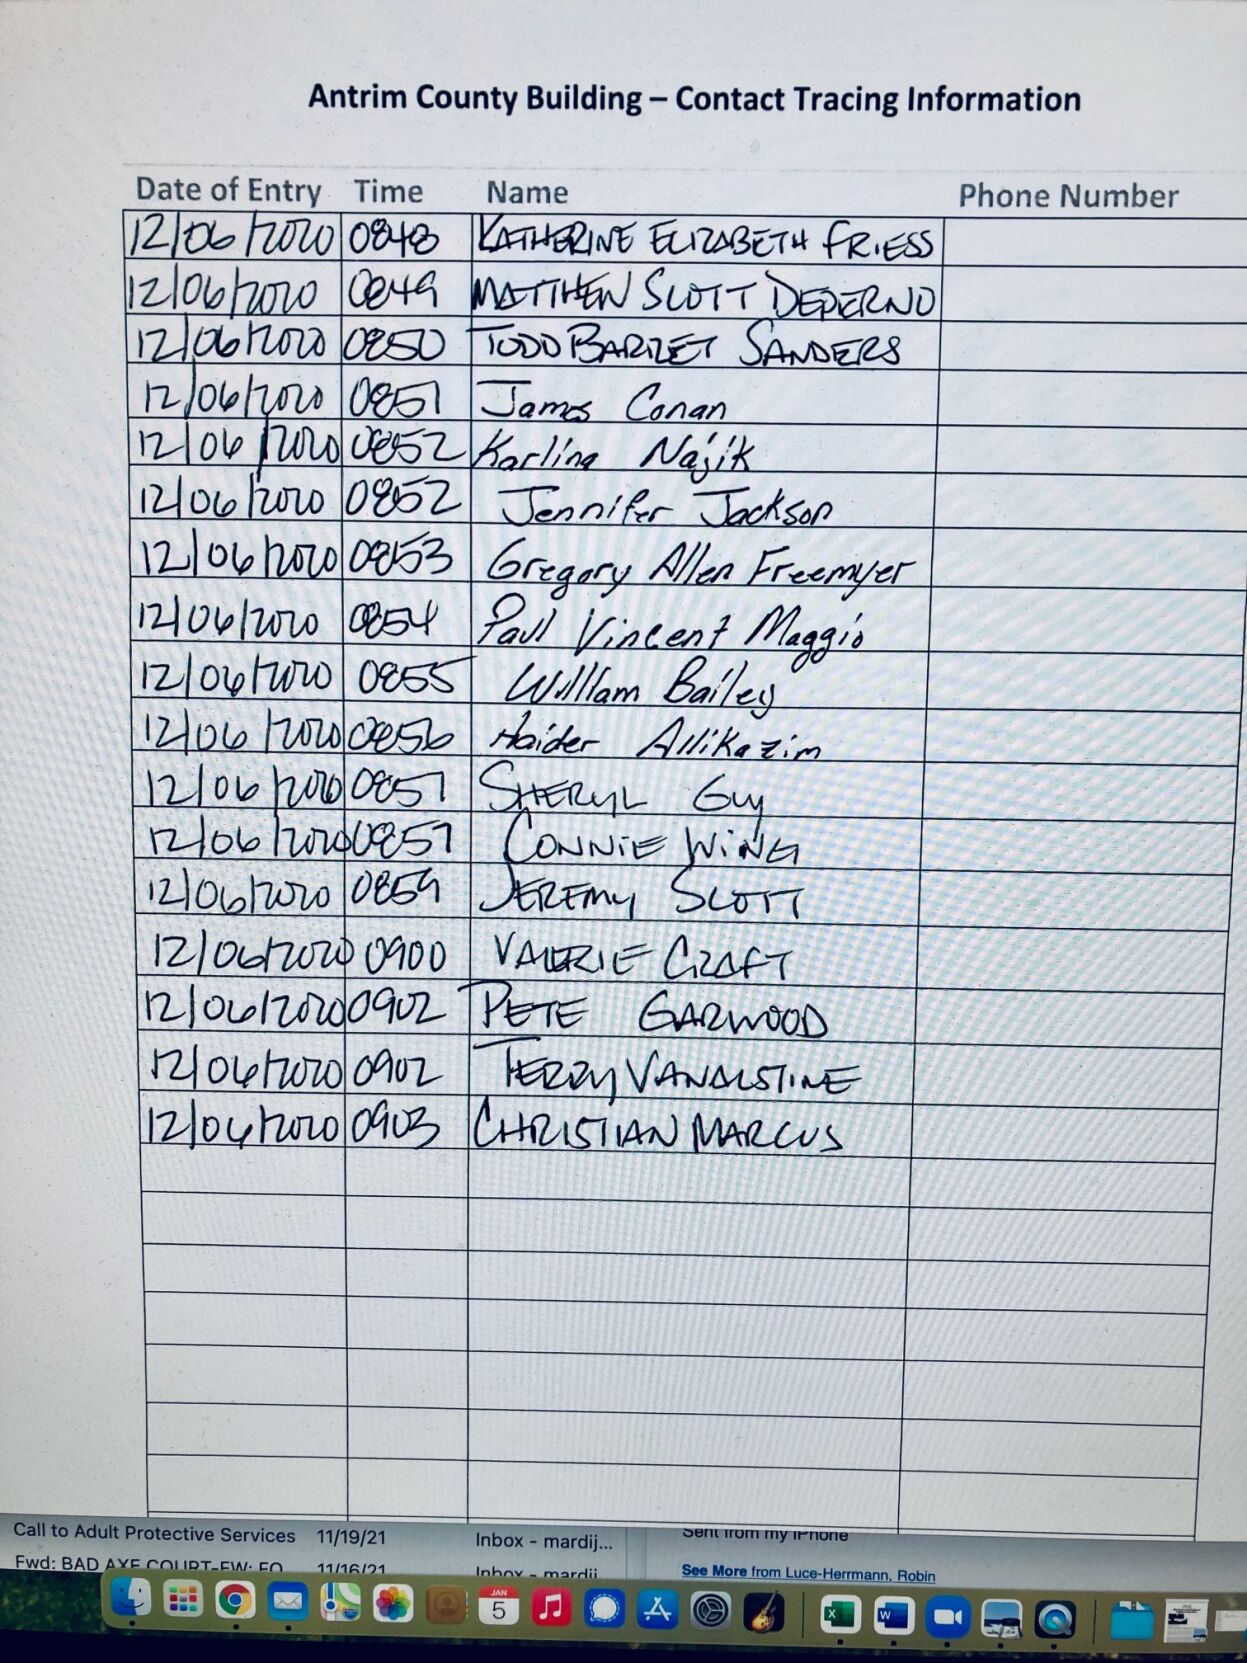 Antrim County Building – Contact Tracing Information
Date of Entry Time Name Phone Number
12/06/2020 0848 KATHERINE ELIZABETH FRIESS
12/06/2020 0849 MATTHEW SCOTT DEPERNO
12/06/2020 0850 TODD BARRET SANDERS
12/06/2020 0851 James Conan
12/06/2020 0852 Karlina Najik
12/06/2020 0852 Jennifer Jackson
12/06/2020 0853 Gregory Allen Freemyer
12/06/2020 0854 Paul Vincent Maggio
12/06/2020 0855 William Bailey
12/06/2020 0856 Haider Allikazim
12/06/2020 0857 SHERYL GUY
12/06/2020 0857 CONNIE WING
12/06/2020 0859 JEREMY SCOTT
12/06/2020 0900 VALERIE CRAFT
12/06/2020 0902 PETE GARWOOD
12/06/2020 0902 TERRY VANALSTINE
12/06/2020 0903 CHRISTIAN MARCUS
Call to Adult Protective Services 11/19/21 Inbox - mardij... Sent from my iPhone
Fwd: BAD AXE COURT-FW: 11/16/21 Inbox - mardij See More from Luce-Herrmann, Robin
JAN
5
X W